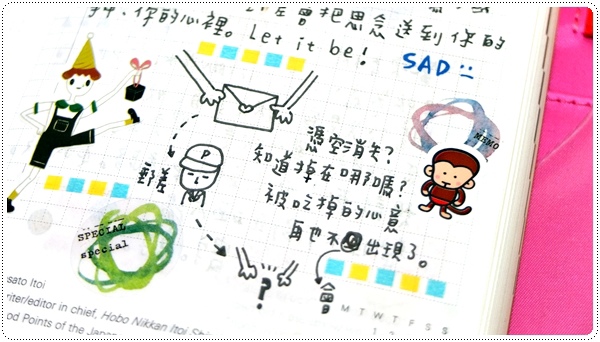 把思念送到你的
你的心裡。Let it be!
SAD
MEMO
憑空消失?
知道掉在哪嗎?
被吃掉的心意
再也不出現了。
會
P
郵差
?
SPECIAL
special
sato Itoi
riter/editor in chief, Hobo Nikkan Itoi
od Points of the Japa
M T W T F S S
1 2